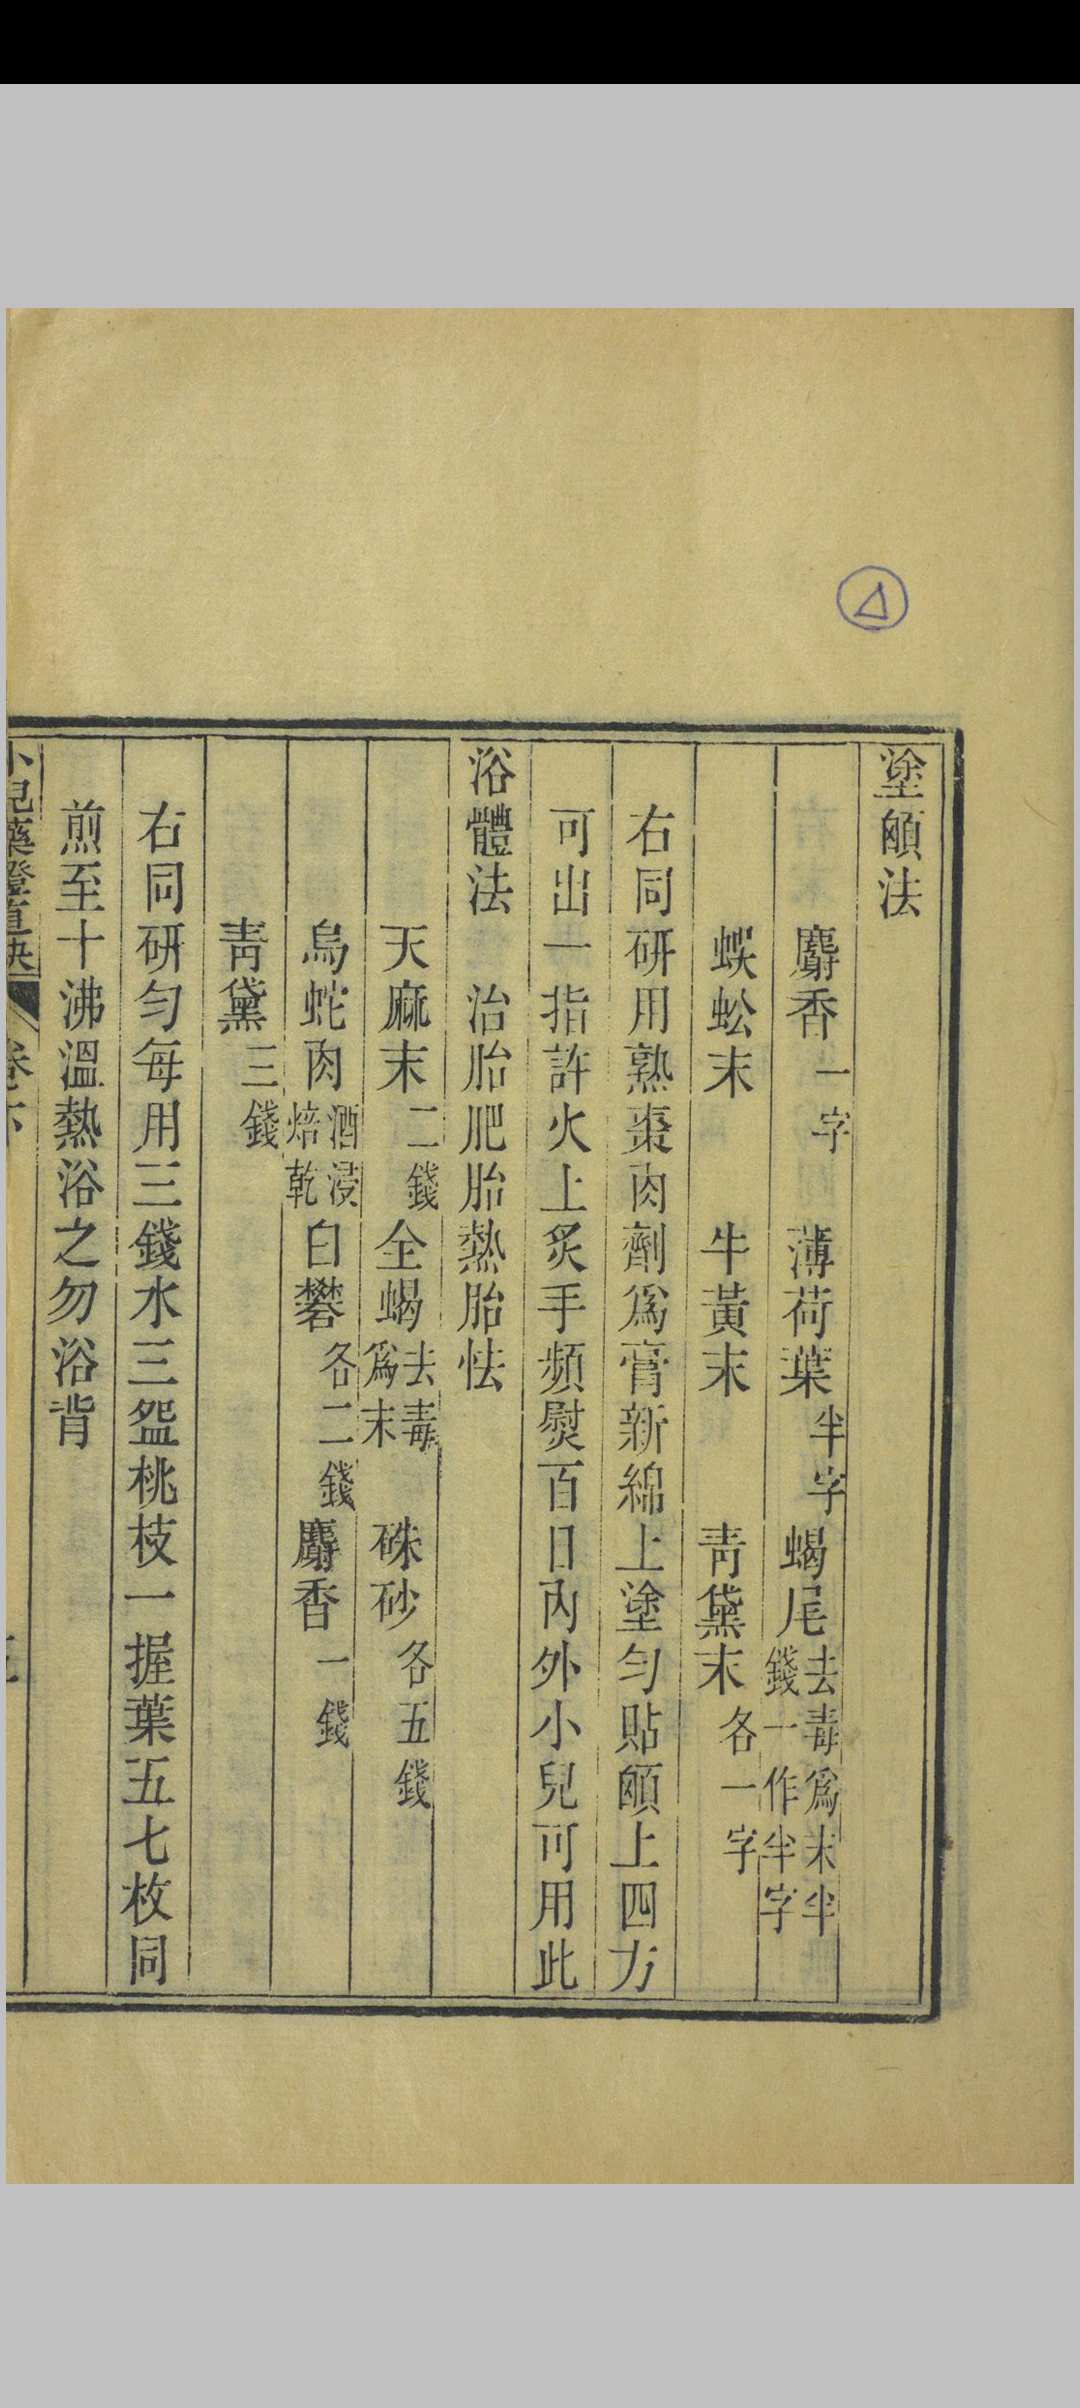 塗䪿法
麝香一字 薄荷葉半字 蝎尾去毒爲末半錢一作半字
蜈蚣末 牛黃末 靑黛末各一字
右同硏用熟棗肉劑爲膏新綿上塗勻貼䪿上四方
可出一指許火上炙手頻熨百日內外小兒可用此
浴體法 治胎肥胎熱胎怯
天麻末二錢 全蝎去毒爲末 硃砂各五錢
烏蛇肉酒浸焙乾 白礬各二錢 麝香一錢
靑黛三錢
右同硏勻每用三錢水三盌桃枝一握葉五七枚同
煎至十沸溫熱浴之勿浴背
小兒藥證直訣 卷下